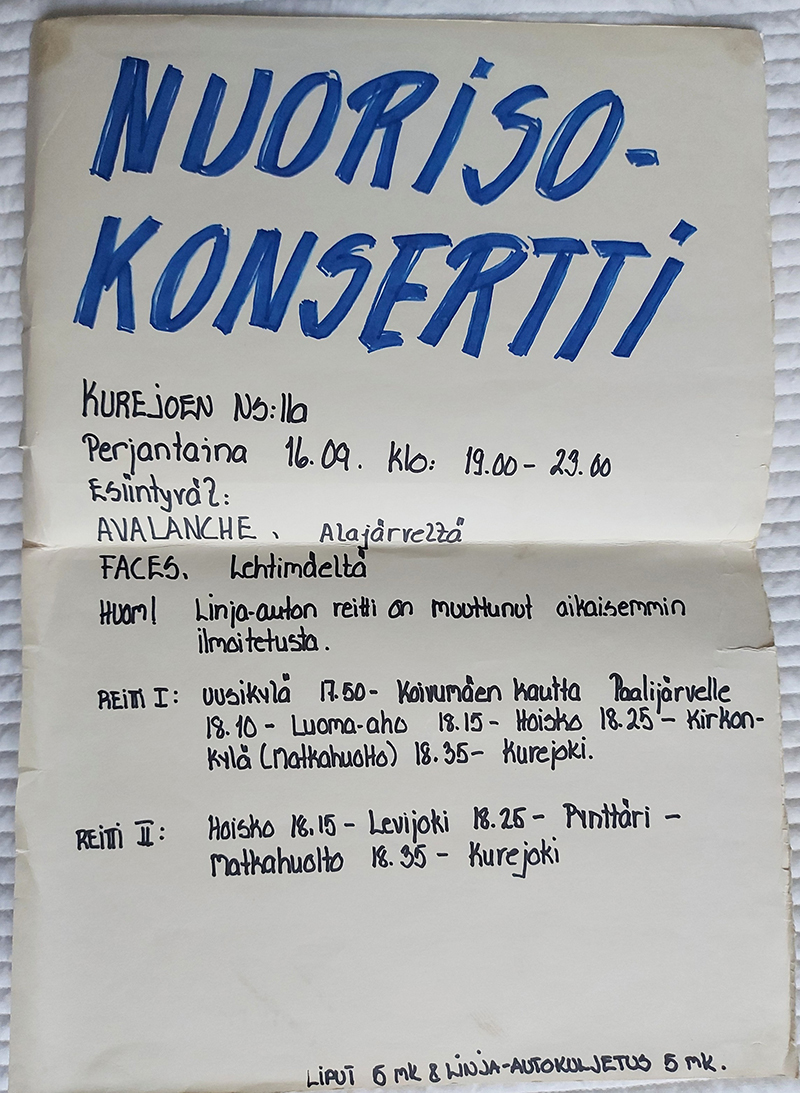 NUORISO-
KONSERTTI
KUREJOEN NS:lla
Perjantaina 16.09. klo: 19.00 - 23.00
Esiintyvät:
AVALANCHE, Alajärveltä
FACES, Lehtimäeltä
HUOM! Linja-auton reitti on muuttunut aikaisemmin
ilmoitetusta.
REITTI I: Uusikylä 17.50 - Koivumäen kautta Paalijärvelle
18.10 - Luoma-aho 18.15 - Hoisko 18.25 - Kirkon-
kylä (Matkahuolto) 18.35 - Kurejoki.
REITTI II: Hoisko 18.15 - Levijoki 18.25 - Pynttäri -
Matkahuolto 18.35 - Kurejoki
LIPUT 5 MK & LINJA-AUTOKULJETUS 5 MK.